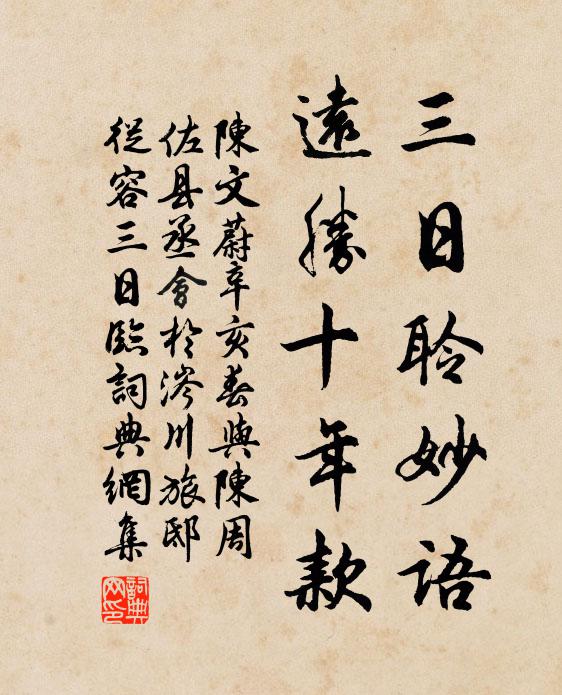 三日聆妙語
遠勝十年款
陳文蔚辛亥春與陳周
佐县丞會於涔川旅邸
從容三日臨詞典網集
詞典网印